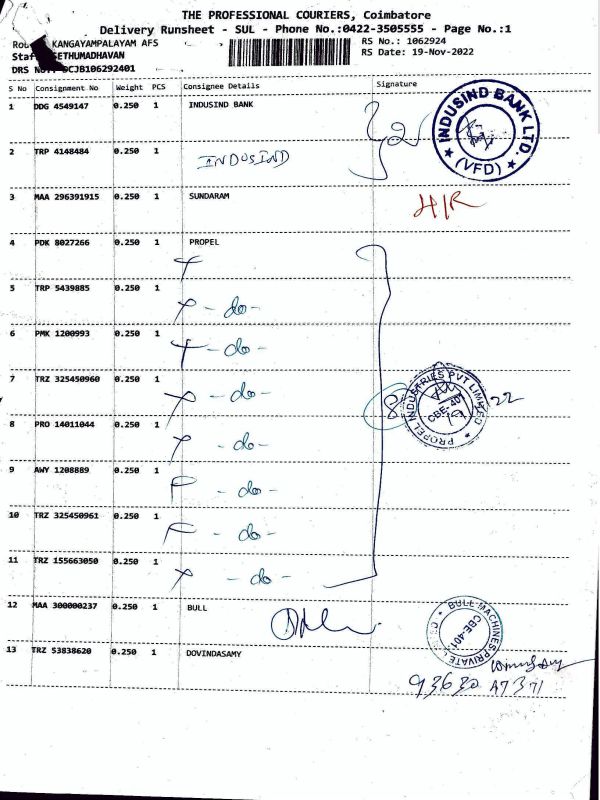 THE PROFESSIONAL COURIERS, Coimbatore
Delivery Runsheet - SUL - Phone No.:0422-3505555 - Page No.:1
KANGAYAMPALAYAM AFS RS No.: 1062924
SETHUMADHAVAN RS Date: 19-Nov-2022
DRS CJB106292401
S No Consignment No Weight PCS Consignee Details Signature
1 DDG 4549147 0.250 1 INDUSIND BANK
INDUSIND BANK LTD. (VFD)
2 TRP 4148484 0.250 1 INDUSIND
3 MAA 296391915 0.250 1 SUNDARAM
4 PDK 8027266 0.250 1 PROPEL
5 TRP 5439885 0.250 1
- do -
6 PMK 1200993 0.250 1
- do -
7 TRZ 325450960 0.250 1
- do -
PROPEL INDUSTRIES PVT LIMITED
CBE-
8 PRO 14011044 0.250 1
- do -
9 AWY 1208889 0.250 1
- do -
10 TRZ 325450961 0.250 1
- do -
11 TRZ 155663050 0.250 1
- do -
12 MAA 300000237 0.250 1 BULL
BULL MACHINES PRIVATE
CBE-401
13 TRZ 53838620 0.250 1 DOVINDASAMY